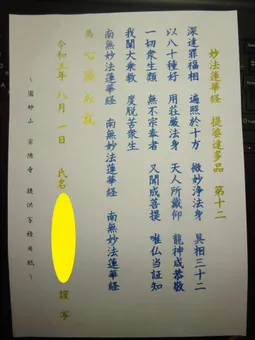 妙法蓮華経 提婆達多品 第十二
深達罪福相 遍照於十方 微妙浄法身 具相三十二
以八十種好 用荘厳法身 天人所戴仰 龍神咸恭敬
一切衆生類 無不宗奉者 又聞成菩提 唯仏当証知
我闡大乗教 度脱苦衆生
南無妙法蓮華経 南無妙法蓮華経 南無妙法蓮華経
為 心願成就
令和 年 八月 一日 氏名 謹写
~ 圓妙山 提供写経用紙 ~